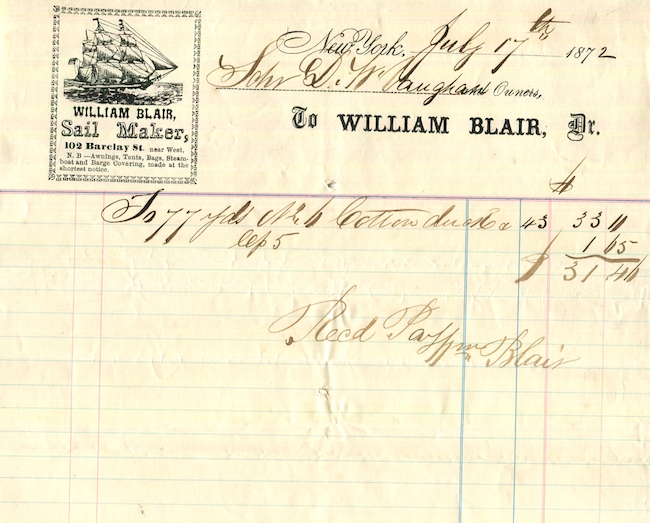 WILLIAM BLAIR,
Sail Maker,
102 Barclay St. near West.
N. B.—Awnings, Tents, Bags, Steam-
boat and Barge Covering, made at the
shortest notice.
New York, July 17th 1872
Schr D. W. Vaughan and Owners,
To WILLIAM BLAIR, Dr.
$
To 77 yds No 6 Cotton duck a 43 33 11
Less 5 1 65
$ 31 46
Recd Pay Wm Blair